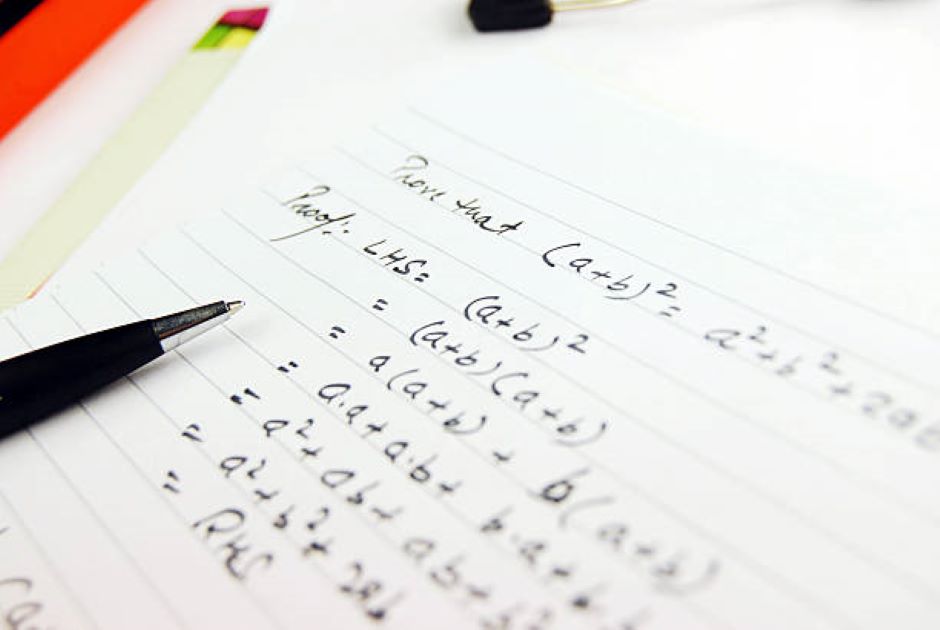 Prove that (a+b)² = a²+b²+2ab
Proof: LHS = (a+b)²
= (a+b)(a+b)
= a(a+b) + b(a+b)
= a.a+a.b+ b.a+b.b
= a²+ab+ab+b²
= a²+b²+2ab
= RHS
(a